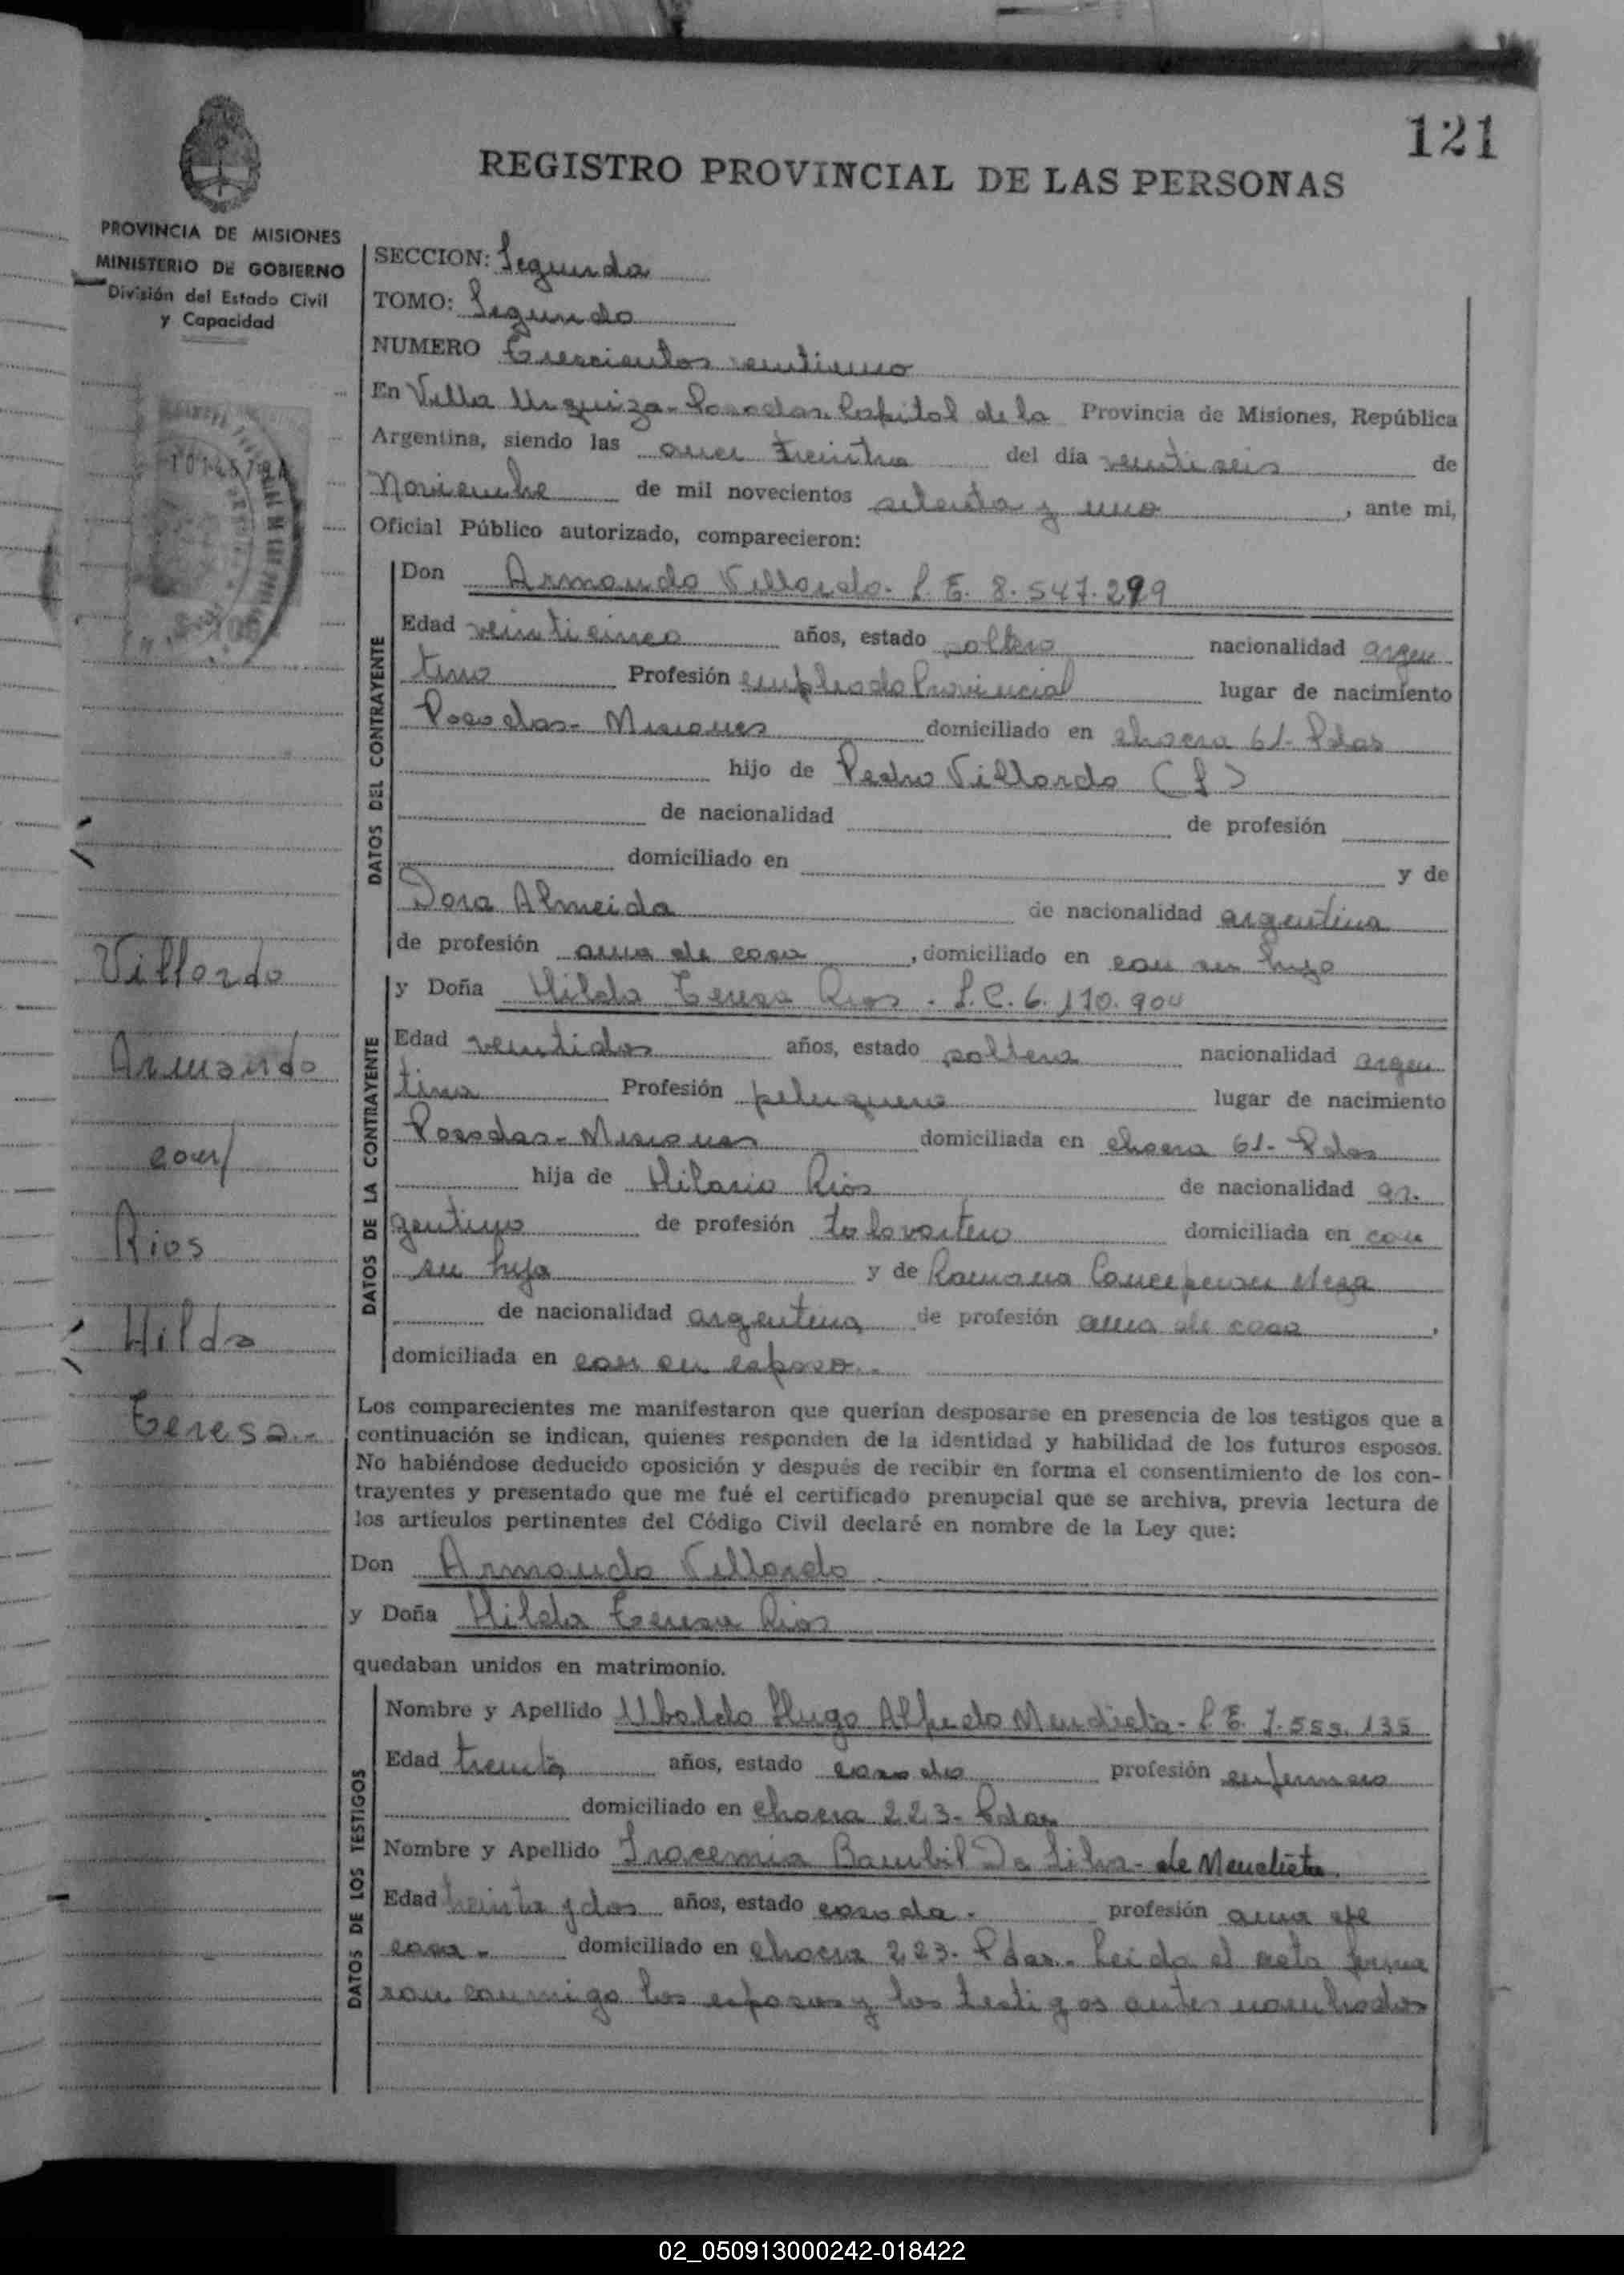 121
REGISTRO PROVINCIAL DE LAS PERSONAS
PROVINCIA DE MISIONES
MINISTERIO DE GOBIERNO
División del Estado Civil
y Capacidad
SECCION: Segunda
TOMO: Segundo
NUMERO Trescientos veintiuno
En Villa Urquiza - Posadas Capital de la Provincia de Misiones, República
Argentina, siendo las once treinta del día veintiseis de
Noviembre de mil novecientos setenta y uno, ante mi,
Oficial Público autorizado, comparecieron:
DATOS DEL CONTRAYENTE
Don Armando Villordo. L. E. 8.547.299
Edad veinticinco años, estado soltero nacionalidad argen
tino Profesión empleado Provincial lugar de nacimiento
Posadas - Misiones domiciliado en chacra 61 - Pdas
hijo de Pedro Villordo (f)
de nacionalidad de profesión
domiciliado en y de
Dora Almeida de nacionalidad argentina
de profesión ama de casa, domiciliado en con su hijo
Villordo
Armando
con/
Rios
Hilda
Teresa.-
DATOS DE LA CONTRAYENTE
y Doña Hilda Teresa Rios. L.C. 6.110.904
Edad veintidos años, estado soltera nacionalidad argen
tina Profesión peluquera lugar de nacimiento
Posadas - Misiones domiciliada en chacra 61 - Pdas
hija de Hilario Rios de nacionalidad ar.
gentino de profesión talabartero domiciliada en con
su hija y de Ramona Concepcion Meza
de nacionalidad argentina de profesión ama de casa,
domiciliada en con su esposo.-
Los comparecientes me manifestaron que querían desposarse en presencia de los testigos que a
continuación se indican, quienes responden de la identidad y habilidad de los futuros esposos.
No habiéndose deducido oposición y después de recibir en forma el consentimiento de los con-
trayentes y presentado que me fué el certificado prenupcial que se archiva, previa lectura de
los artículos pertinentes del Código Civil declaré en nombre de la Ley que:
Don Armando Villordo
y Doña Hilda Teresa Rios
quedaban unidos en matrimonio.
DATOS DE LOS TESTIGOS
Nombre y Apellido Ubaldo Hugo Alfredo Mendieta - L. E. 7.559.135
Edad treinta años, estado casado profesión enfermero
domiciliado en chacra 223 - Pdas
Nombre y Apellido Iracemia Bambil Da Silva - de Mendieta.
Edad treinta y dos años, estado casada. profesión ama de
casa - domiciliado en chacra 223 - Pdas. Leida el acta firma
ron conmigo los esposos y los testigos antes nombrados
02_050913000242-018422